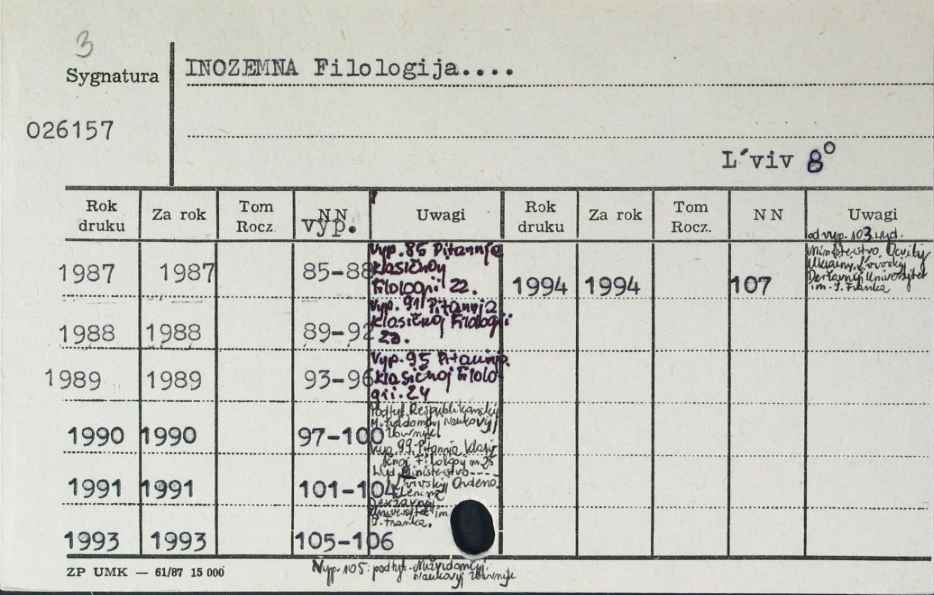 3
Sygnatura
INOZEMNA Filologija....
026157
L'viv 8°
Rok druku Za rok Tom Rocz. NN vyp. Uwagi Rok druku Za rok Tom Rocz. NN Uwagi
od vyp. 103 wyd.
Ministerstvo Osvity
Ukrainy
Deržavnyj Universytet
im. I. Franka
1987 1987 85-88
Vyp. 85 Pitannja
klasičnoj
filologii 22.
1994 1994 107
1988 1988 89-92
Vyp. 91 Pitannja
klasičnoj Filologii
23.
1989 1989 93-96
Vyp. 95 Pitannja
klasičnoj Filolo
gii. 24
1990 1990 97-100
Podtyt. Respublikanskij
Mižvidomčyj Naukovyj
zbirnyk.
Vyp. 99 Pitannja klasy
čnoj Filologij
Wyd. Ministerstvo
1991 1991 101-104
L'vivskij Ordena
Lenina
Deržavnyj
Universytet im.
I. Franka.
1993 1993 105-106
ZP UMK — 61/87 15 000
Vyp. 105: podtyt. Mižvidomčyj
Naukovyj zbirnyk